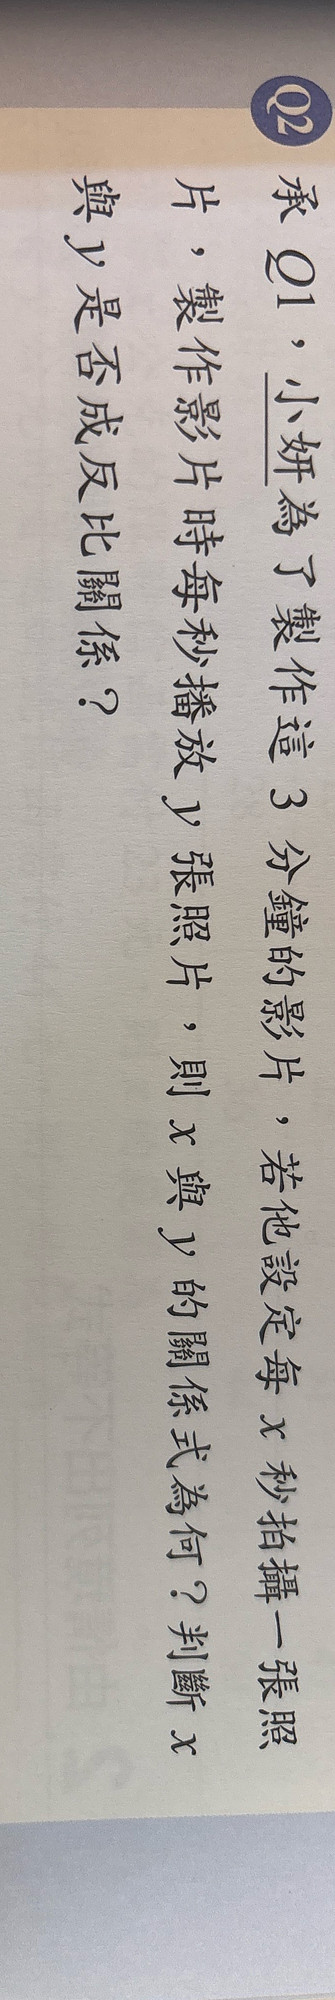 Q2
承 Q1，小妍為了製作這 3 分鐘的影片，若他設定每 x 秒拍攝一張照
片，製作影片時每秒播放 y 張照片，則 x 與 y 的關係式為何？判斷 x
與 y 是否成反比關係？